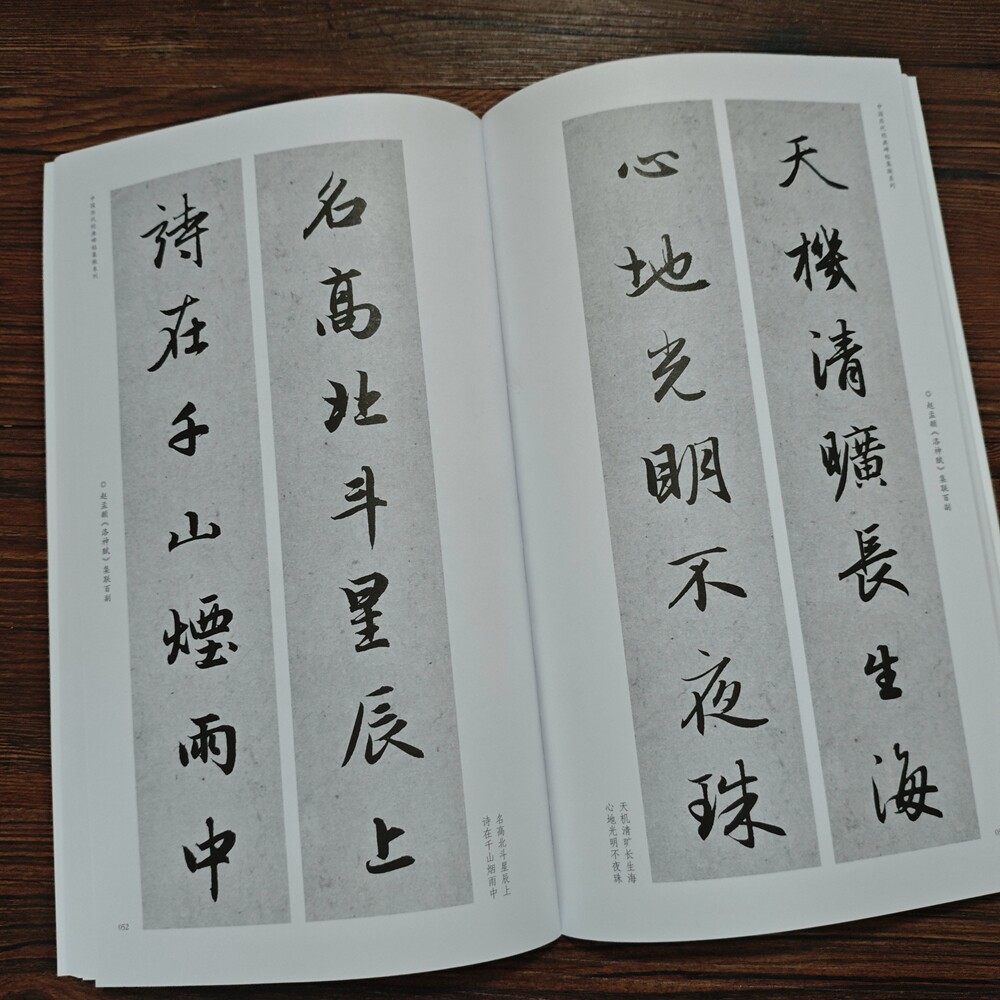 名高北斗星辰上
詩在千山煙雨中
名高北斗星辰上
诗在千山烟雨中
中国历代经典碑帖集联系列
◎ 赵孟頫《洛神赋》集联百副
052
中国历代经典碑帖集联系列
◎ 赵孟頫《洛神赋》集联百副
天機清曠長生海
心地光明不夜珠
天机清旷长生海
心地光明不夜珠